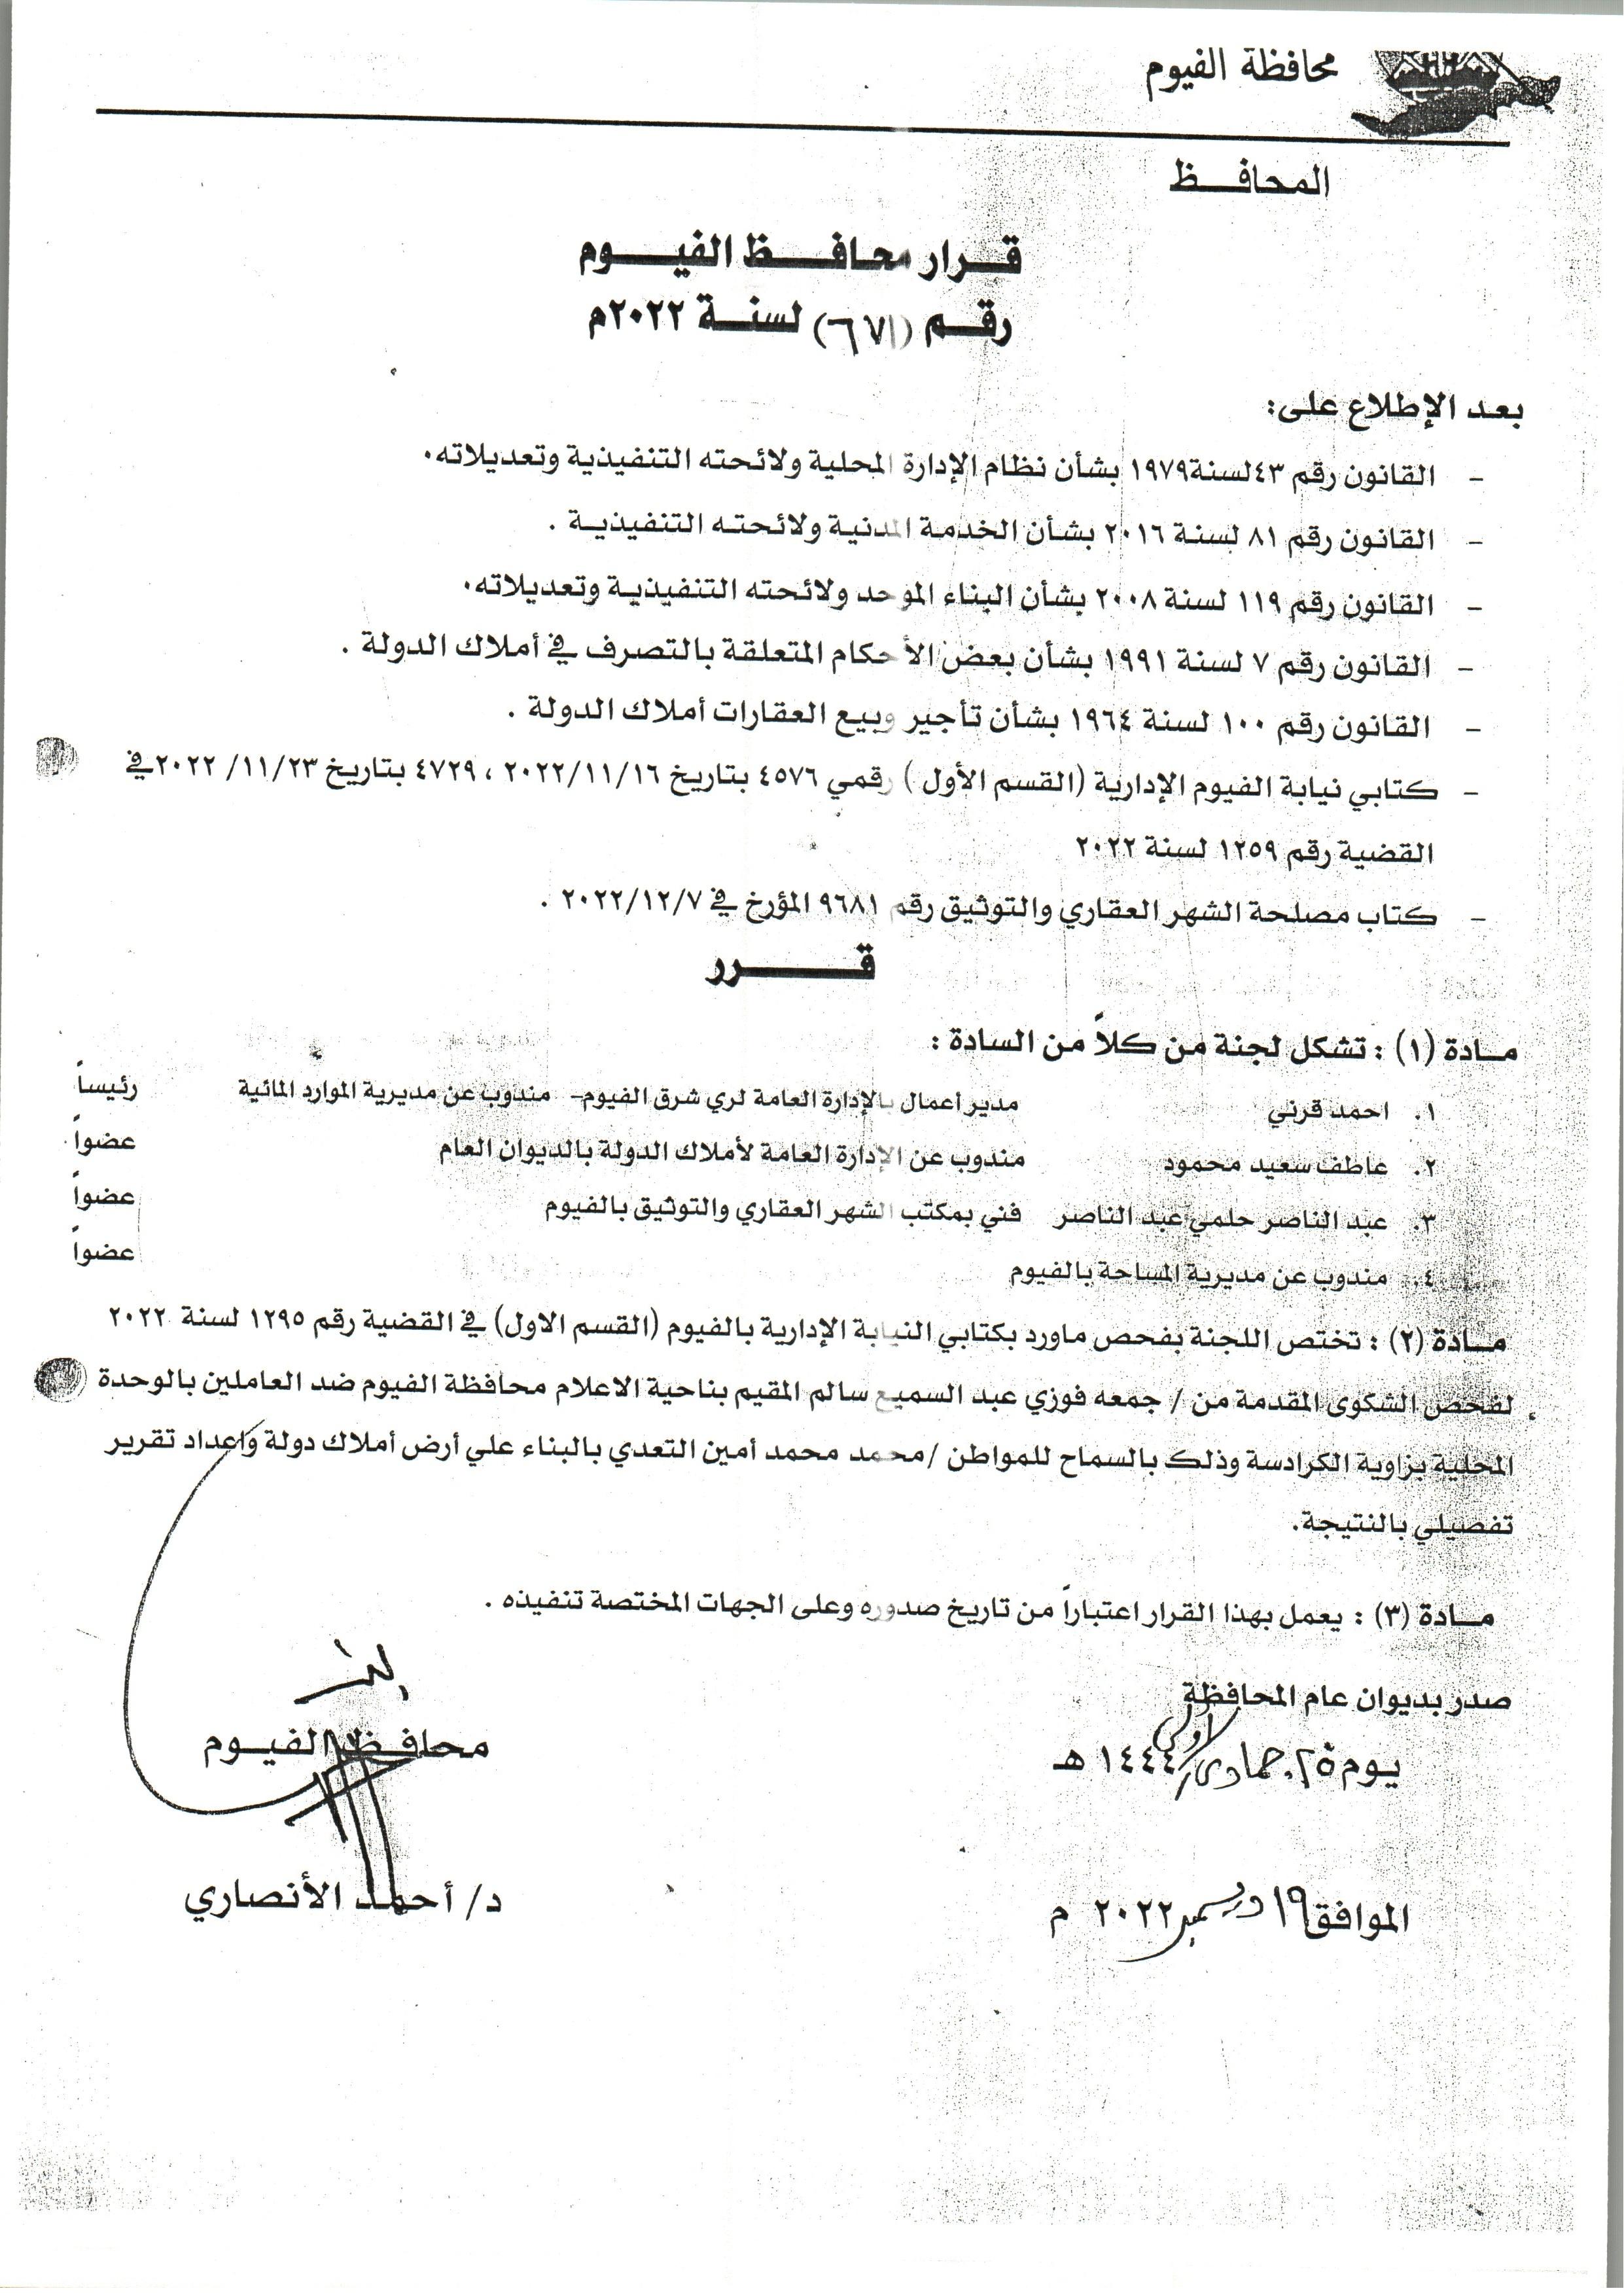 محافظة الفيوم
المحافظ
قرار محافظ الفيوم
رقم (٦٧١) لسنة ٢٠٢٢م
بعد الإطلاع على:
- القانون رقم ٤٣لسنة١٩٧٩ بشأن نظام الإدارة المحلية ولائحته التنفيذية وتعديلاته.
- القانون رقم ٨١ لسنة ٢٠١٦ بشأن الخدمة المدنية ولائحته التنفيذية .
- القانون رقم ١١٩ لسنة ٢٠٠٨ بشأن البناء الموحد ولائحته التنفيذية وتعديلاته.
- القانون رقم ٧ لسنة ١٩٩١ بشأن بعض الأحكام المتعلقة بالتصرف في أملاك الدولة .
- القانون رقم ١٠٠ لسنة ١٩٦٤ بشأن تأجير وبيع العقارات أملاك الدولة .
- كتابي نيابة الفيوم الإدارية (القسم الأول ) رقمي ٤٥٧٦ بتاريخ ٢٠٢٢/١١/١٦ ، ٤٧٢٩ بتاريخ ٢٠٢٢/١١/٢٣ في
القضية رقم ١٢٥٩ لسنة ٢٠٢٢
- كتاب مصلحة الشهر العقاري والتوثيق رقم ٩٦٨١ المؤرخ في ٢٠٢٢/١٢/٧ .
قرر
مادة (١) : تشكل لجنة من كلاً من السادة :
١. احمد قرني مدير أعمال بالإدارة العامة لري شرق الفيوم- مندوب عن مديرية الموارد المائية رئيساً
٢. عاطف سعيد محمود مندوب عن الإدارة العامة لأملاك الدولة بالديوان العام عضواً
٣. عبد الناصر حلمي عبد الناصر فني بمكتب الشهر العقاري والتوثيق بالفيوم عضواً
٤. مندوب عن مديرية المساحة بالفيوم عضواً
مادة (٢) : تختص اللجنة بفحص ماورد بكتابي النيابة الإدارية بالفيوم (القسم الاول) في القضية رقم ١٢٩٥ لسنة ٢٠٢٢
لفحص الشكوى المقدمة من / جمعه فوزي عبد السميع سالم المقيم بناحية الاعلام محافظة الفيوم ضد العاملين بالوحدة
المحلية بزاوية الكرادسة وذلك بالسماح للمواطن /محمد محمد أمين التعدي بالبناء علي أرض أملاك دولة وإعداد تقرير
تفصيلي بالنتيجة.
مادة (٣) : يعمل بهذا القرار اعتباراً من تاريخ صدوره وعلى الجهات المختصة تنفيذه .
صدر بديوان عام المحافظة
يوم ٢٥ جمادى الأولى ١٤٤٤ هـ
الموافق ١٩ ديسمبر ٢٠٢٢ م
محافظ الفيوم
د/ أحمد الأنصاري